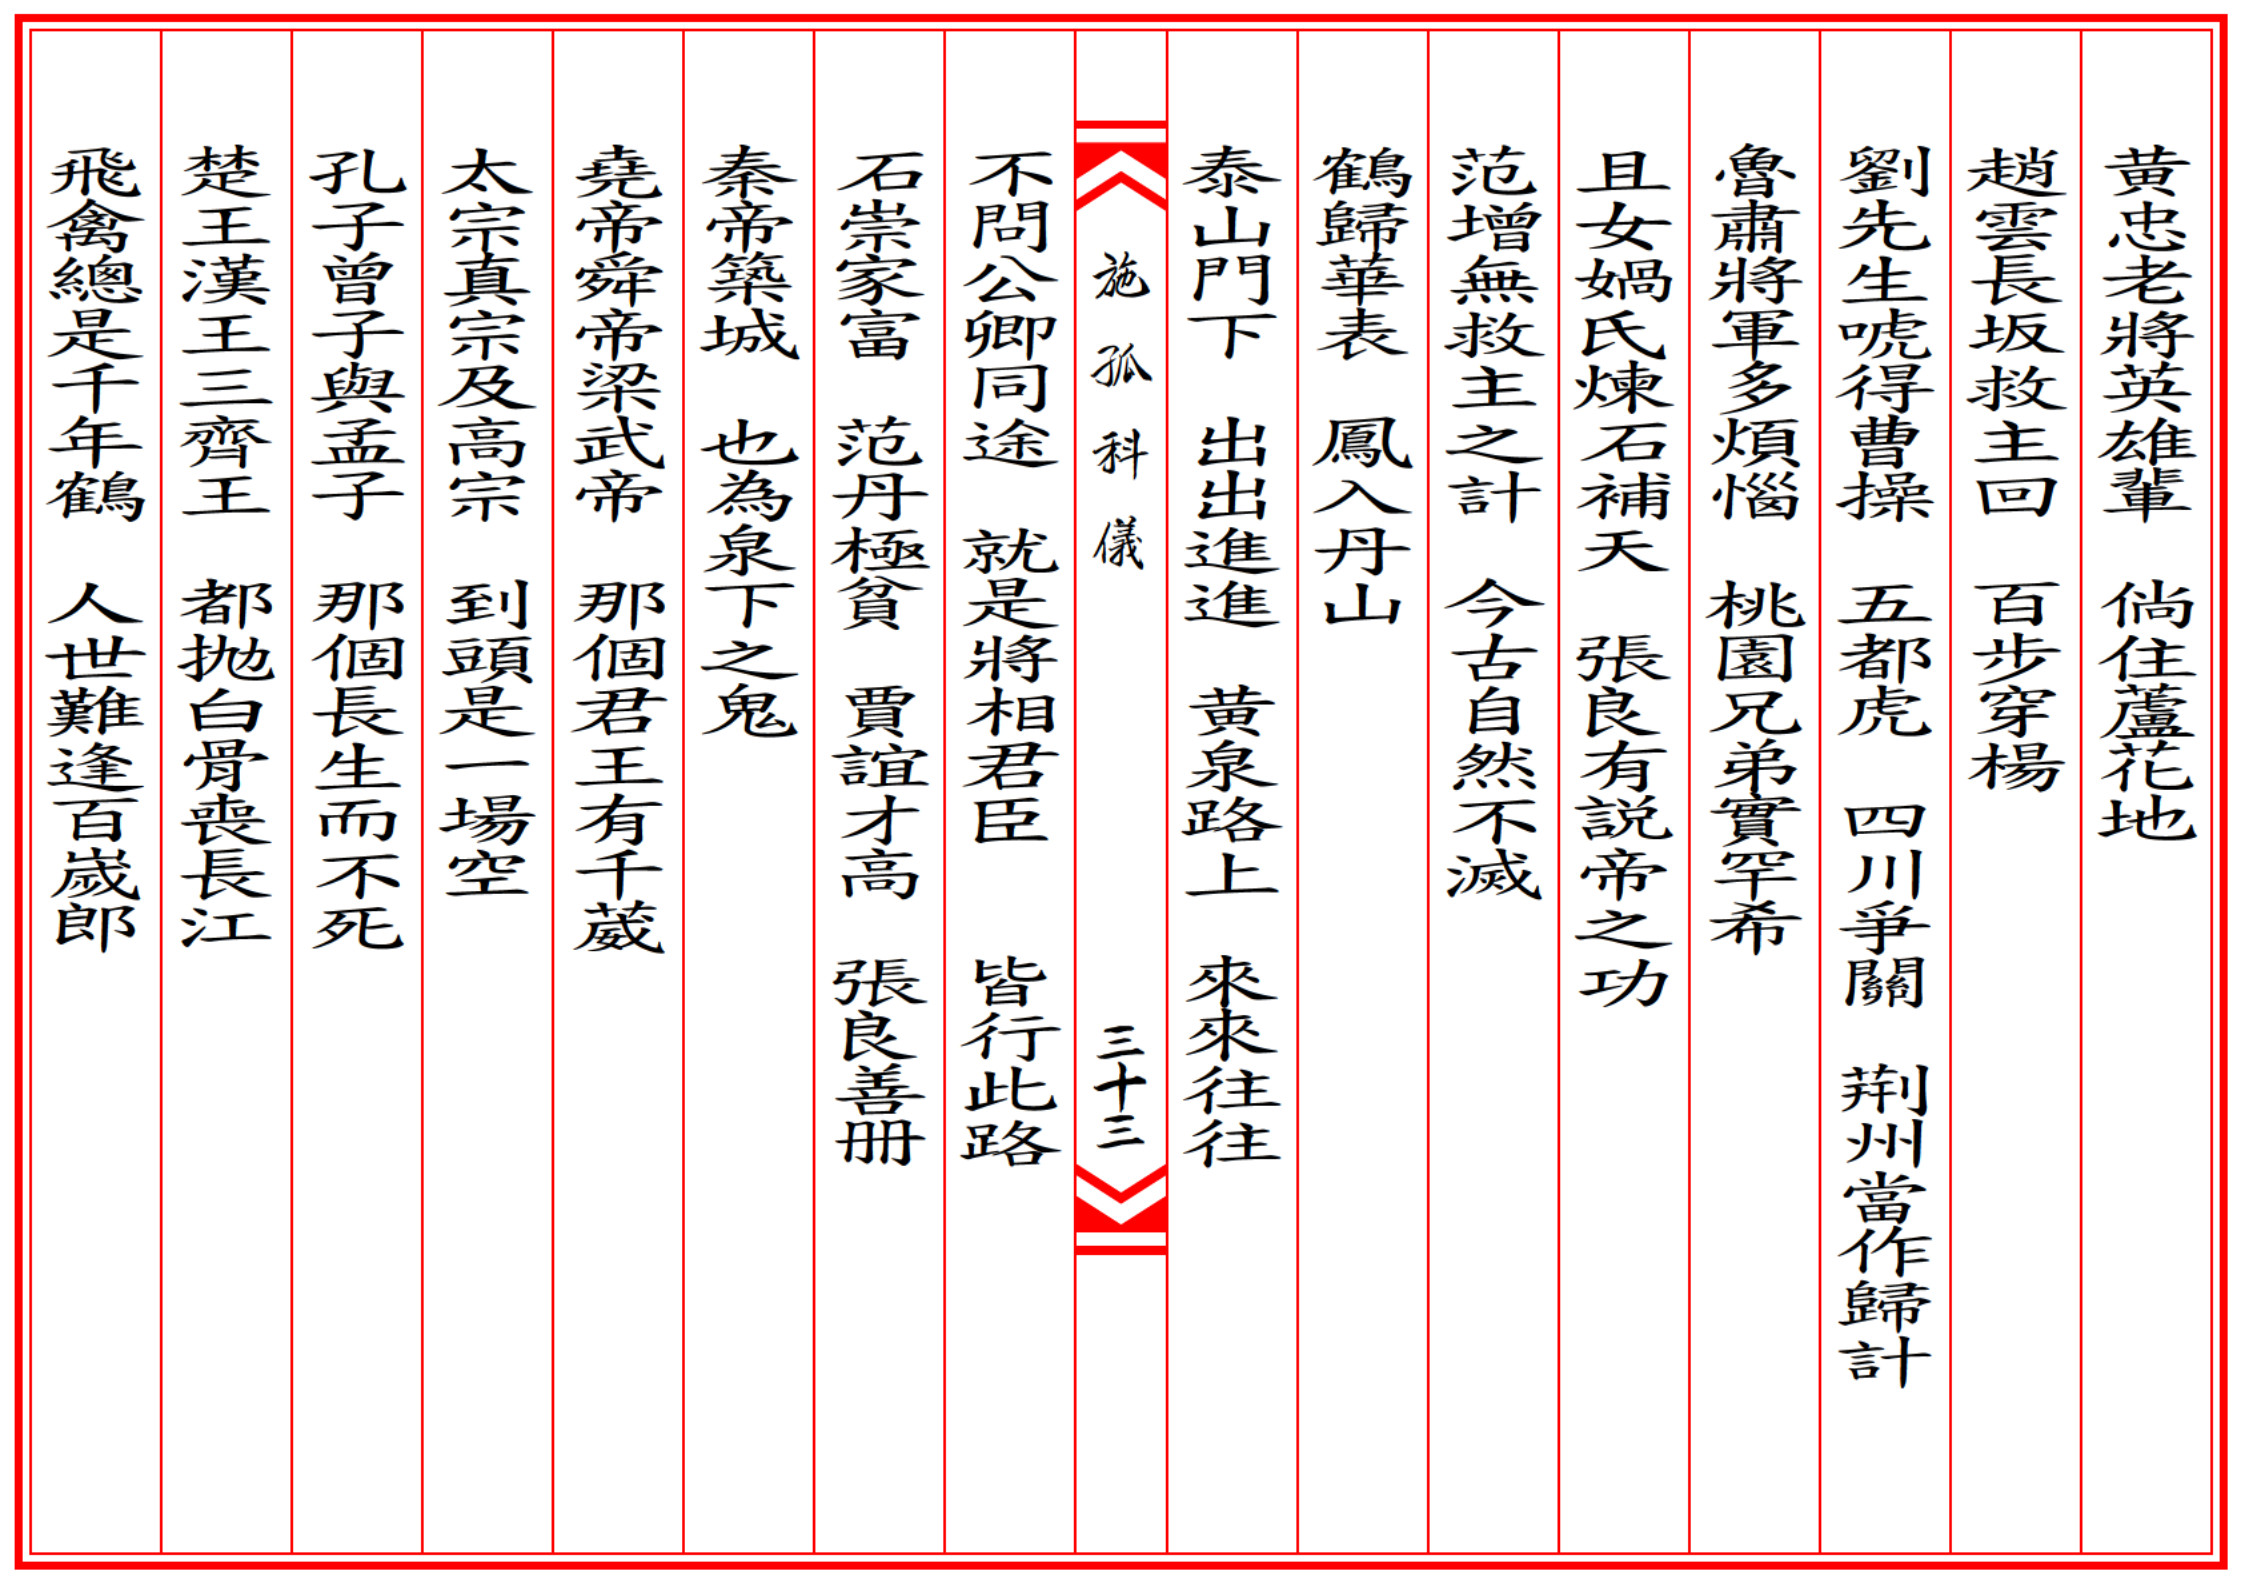 黄忠老將英雄輩　倘住蘆花地
趙雲長坂救主回　百步穿楊
劉先生唬得曹操　五都虎　四川爭關　荆州當作歸計
魯肅將軍多煩惱　桃園兄弟實罕希
且女媧氏煉石補天　張良有説帝之功
范增無救主之計　今古自然不滅
鶴歸華表　鳳入丹山
泰山門下　出出進進　黄泉路上　來來往往
施孤科儀　三十三
不問公卿同途　就是將相君臣　皆行此路
石崇家富　范丹極貧　賈誼才高　張良善册
秦帝築城　也為泉下之鬼
堯帝舜帝梁武帝　那個君王有千葳
太宗真宗及高宗　到頭是一場空
孔子曾子與孟子　那個長生而不死
楚王漢王三齊王　都抛白骨喪長江
飛禽總是千年鶴　人世難逢百嵗郎